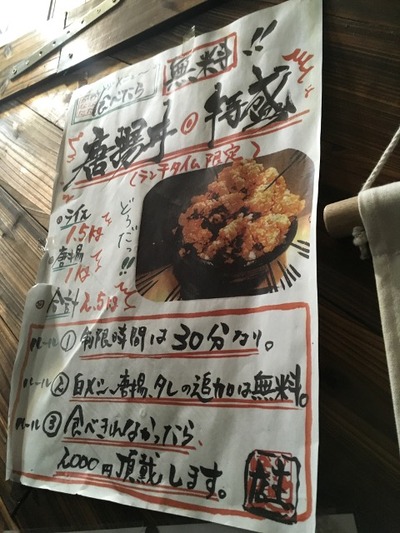 無料!!
唐揚丼の特盛
(ランチタイム限定)
どうだっ!!
◎ライス
1.5kg
◎唐揚
1kg
◎合計2.5kg
ルール① 制限時間は30分なり。
ルール② 白メシ、唐揚、タレの追加は無料。
ルール③ 食べきれなかったら、
2,000円頂戴します。